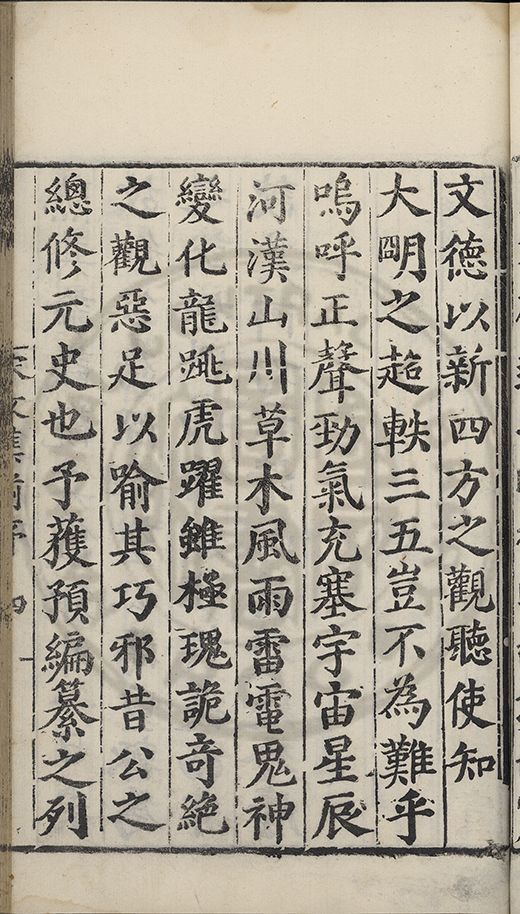 文德以新四方之觀聽使知
大明之超軼三五豈不為難乎
嗚呼正聲勁氣充塞宇宙星辰
河漢山川草木風雨雷電鬼神
變化龍跳虎躍雖極瑰詭奇絕
之觀惡足以喻其巧邪昔公之
總修元史也予獲預編纂之列
宋文集前序
四